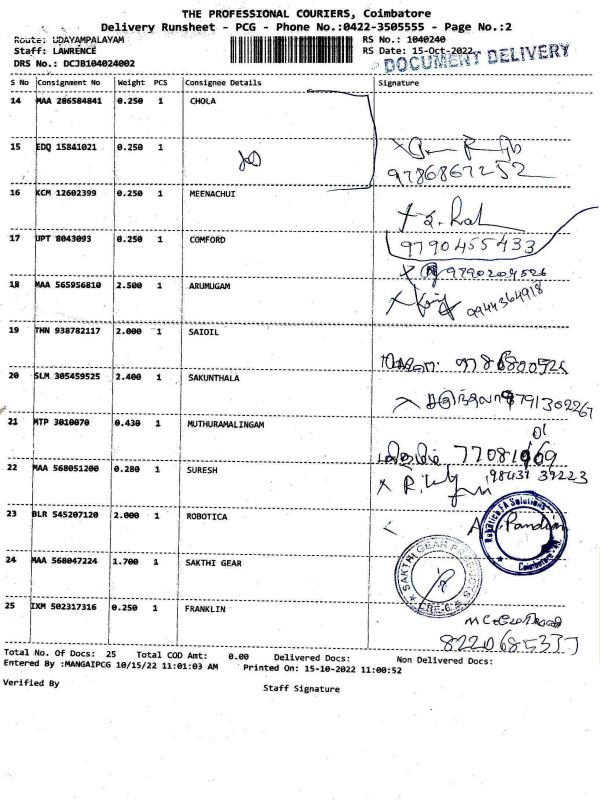 THE PROFESSIONAL COURIERS, Coimbatore
Delivery Runsheet - PCG - Phone No.:0422-3505555 - Page No.:2
Route: UDAYAMPALAYAM RS No.: 1040240
Staff: LAWRENCE RS Date: 15-Oct-2022
DRS No.: DCJB104024002 DOCUMENT DELIVERY
S No Consignment No Weight PCS Consignee Details Signature
14 MAA 286584841 0.250 1 CHOLA
15 EDQ 15841021 0.250 1
9786867252
16 KCM 12602399 0.250 1 MEENACHUI
17 UPT 8043093 0.250 1 COMFORD 9790455433
9790209526
18 MAA 565956810 2.500 1 ARUMUGAM
9944364918
19 THN 938782117 2.000 1 SAIOIL
20 SLM 305459525 2.400 1 SAKUNTHALA
21 MTP 3010070 0.430 1 MUTHURAMALINGAM
22 MAA 568051200 0.280 1 SURESH
98431 39223
23 BLR 545207120 2.000 1 ROBOTICA
Pandian
Robotica FA Solutions
Coimbatore
24 MAA 568047224 1.700 1 SAKTHI GEAR
SAKTHI GEAR PRODUCTS
25 IXM 502317316 0.250 1 FRANKLIN
Total No. Of Docs: 25 Total COD Amt: 0.00 Delivered Docs: Non Delivered Docs:
Entered By :MANGAIPCG 10/15/22 11:01:03 AM Printed On: 15-10-2022 11:00:52
Verified By
Staff Signature